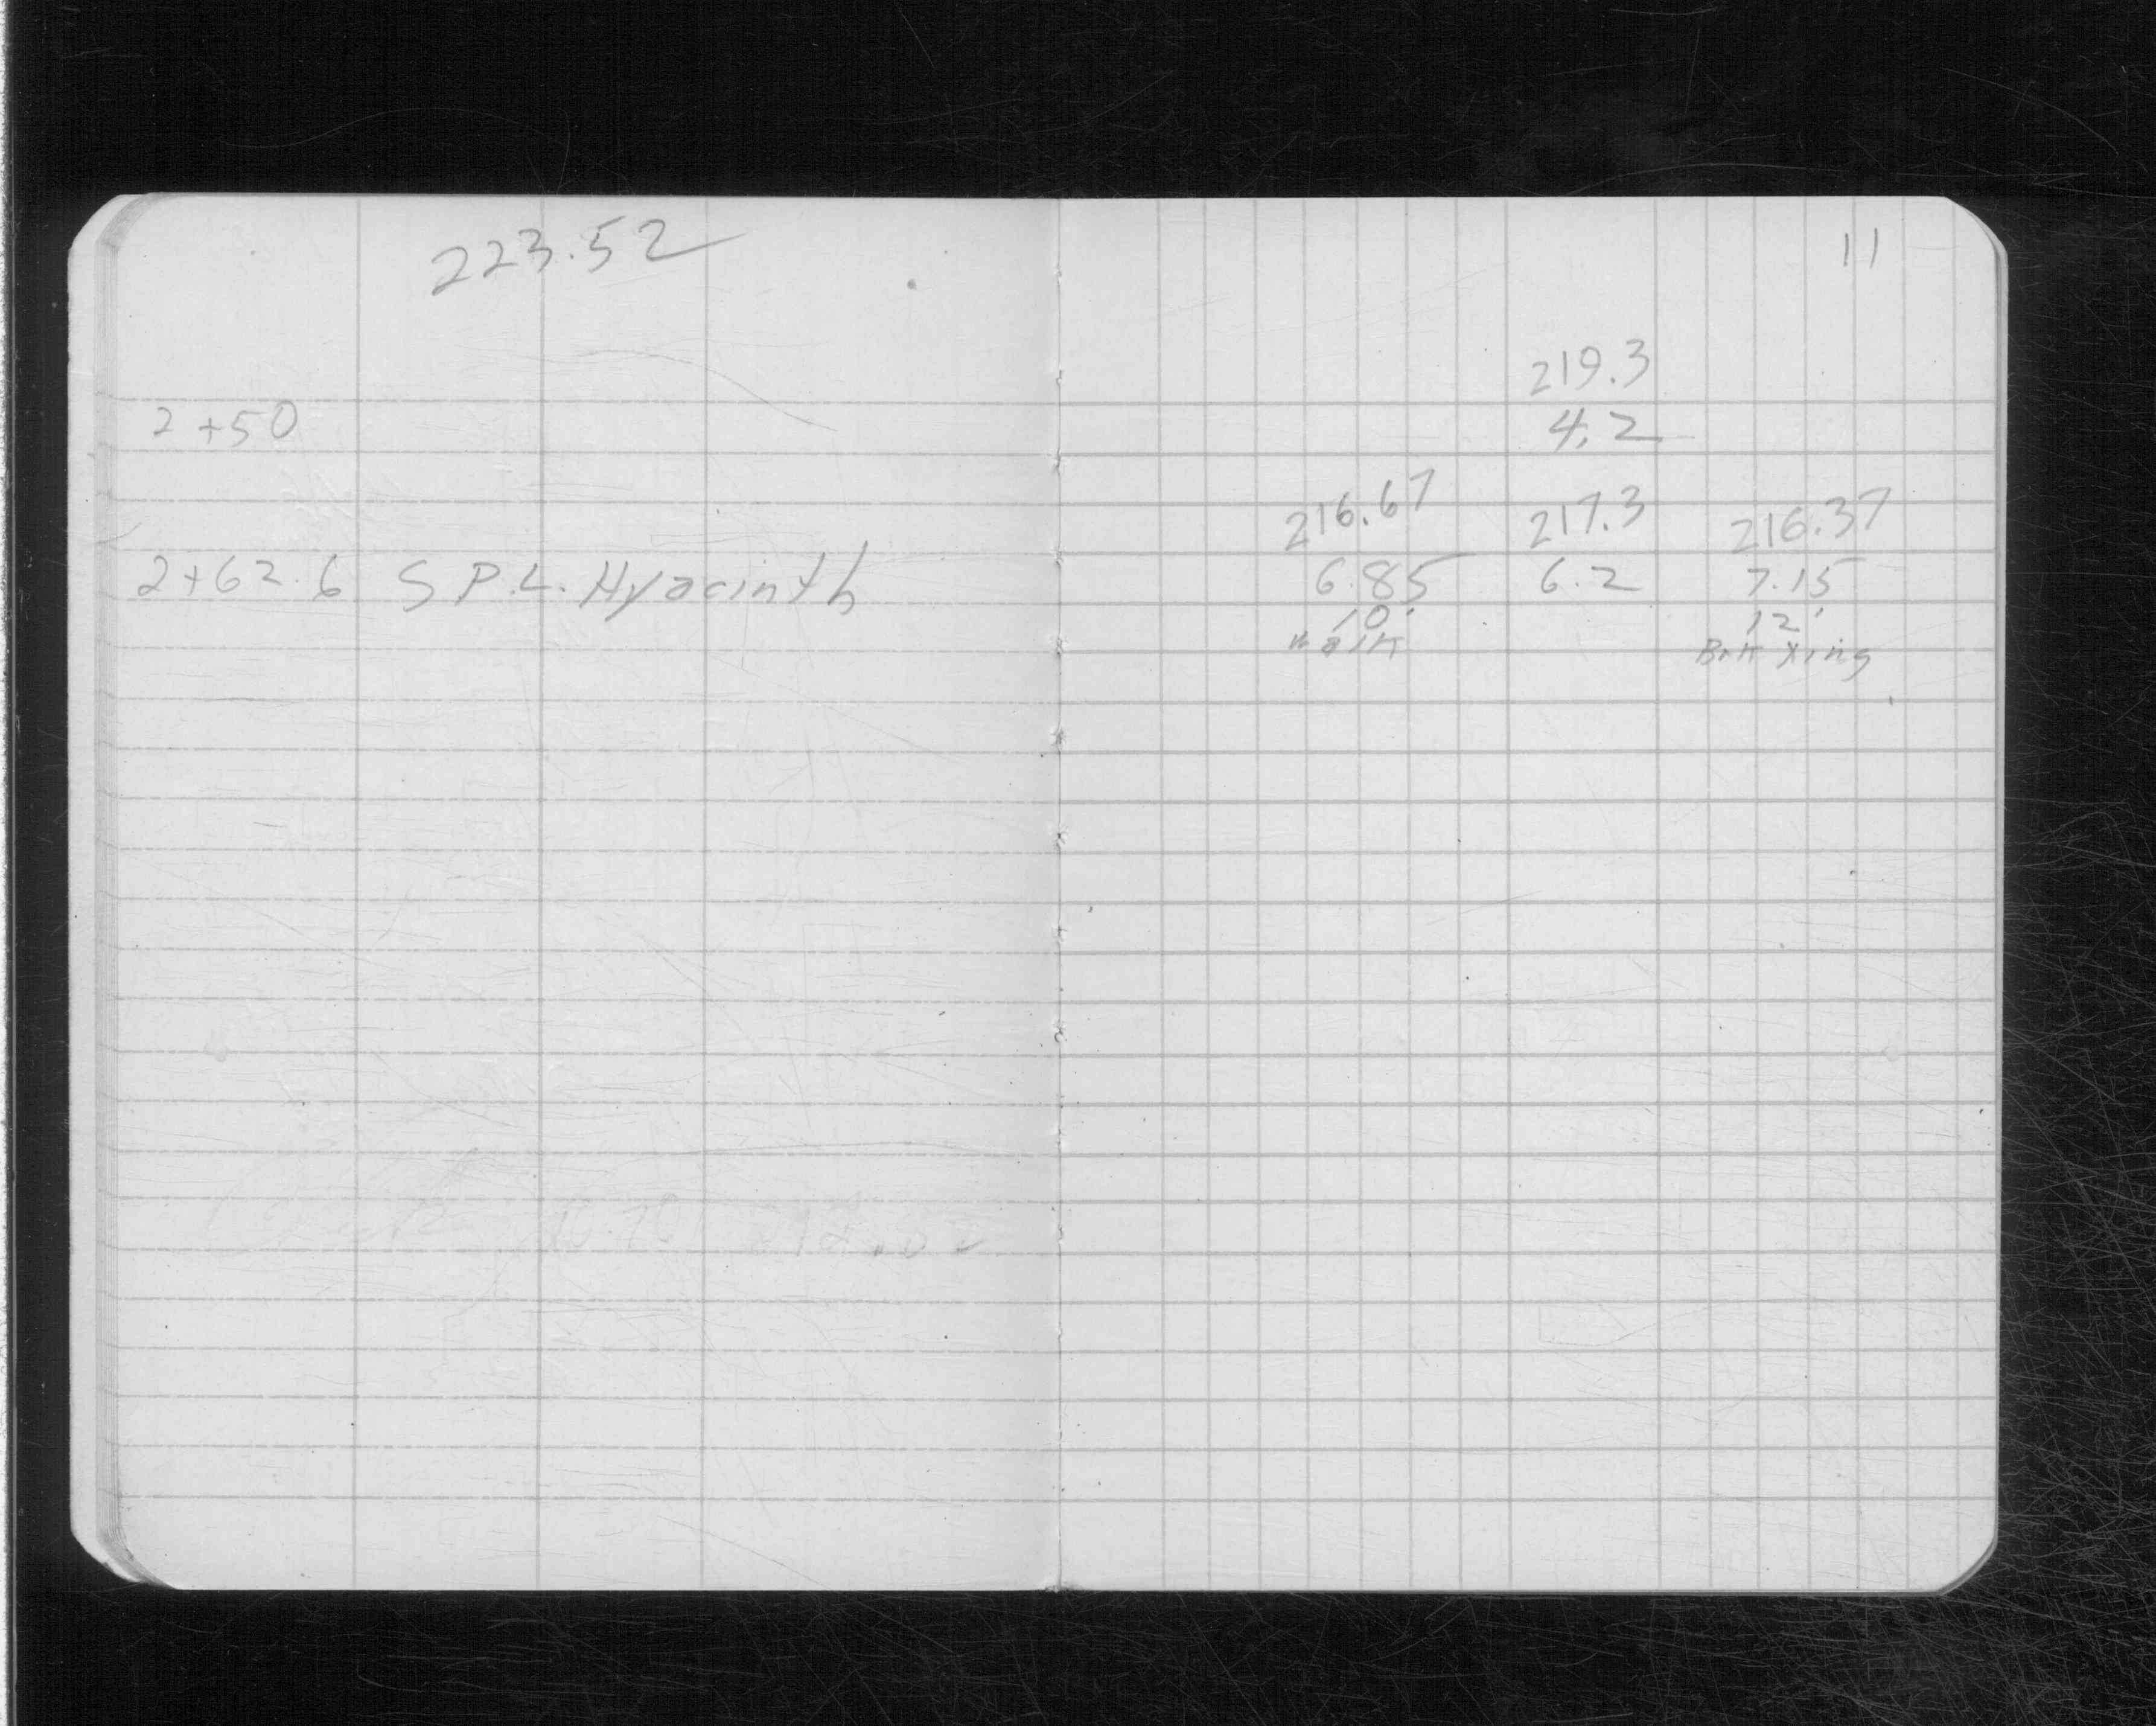 223.52
11
219.3
2+50 4.2
216.67 217.3 216.37
2+62.6 S P.L. Hyacinth 6.85 6.2 7.15
10' 12'
Walk Brk Xing